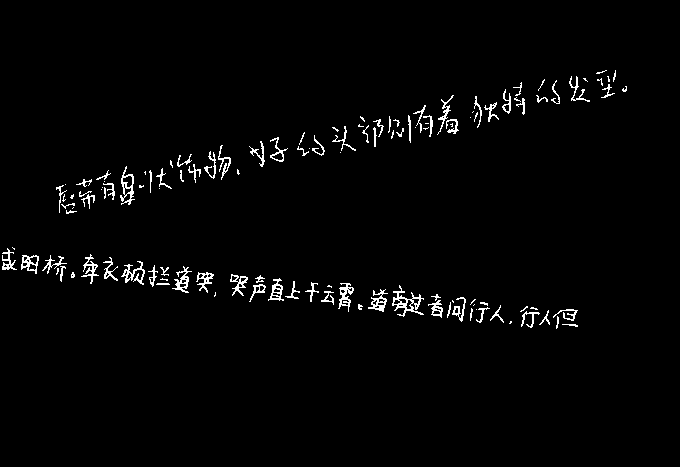 唇带有盘状饰物,好的头部则有着独特的发型。
咸阳桥。牵衣顿拦道哭,哭声直上干云霄。道旁过者问行人,行人但